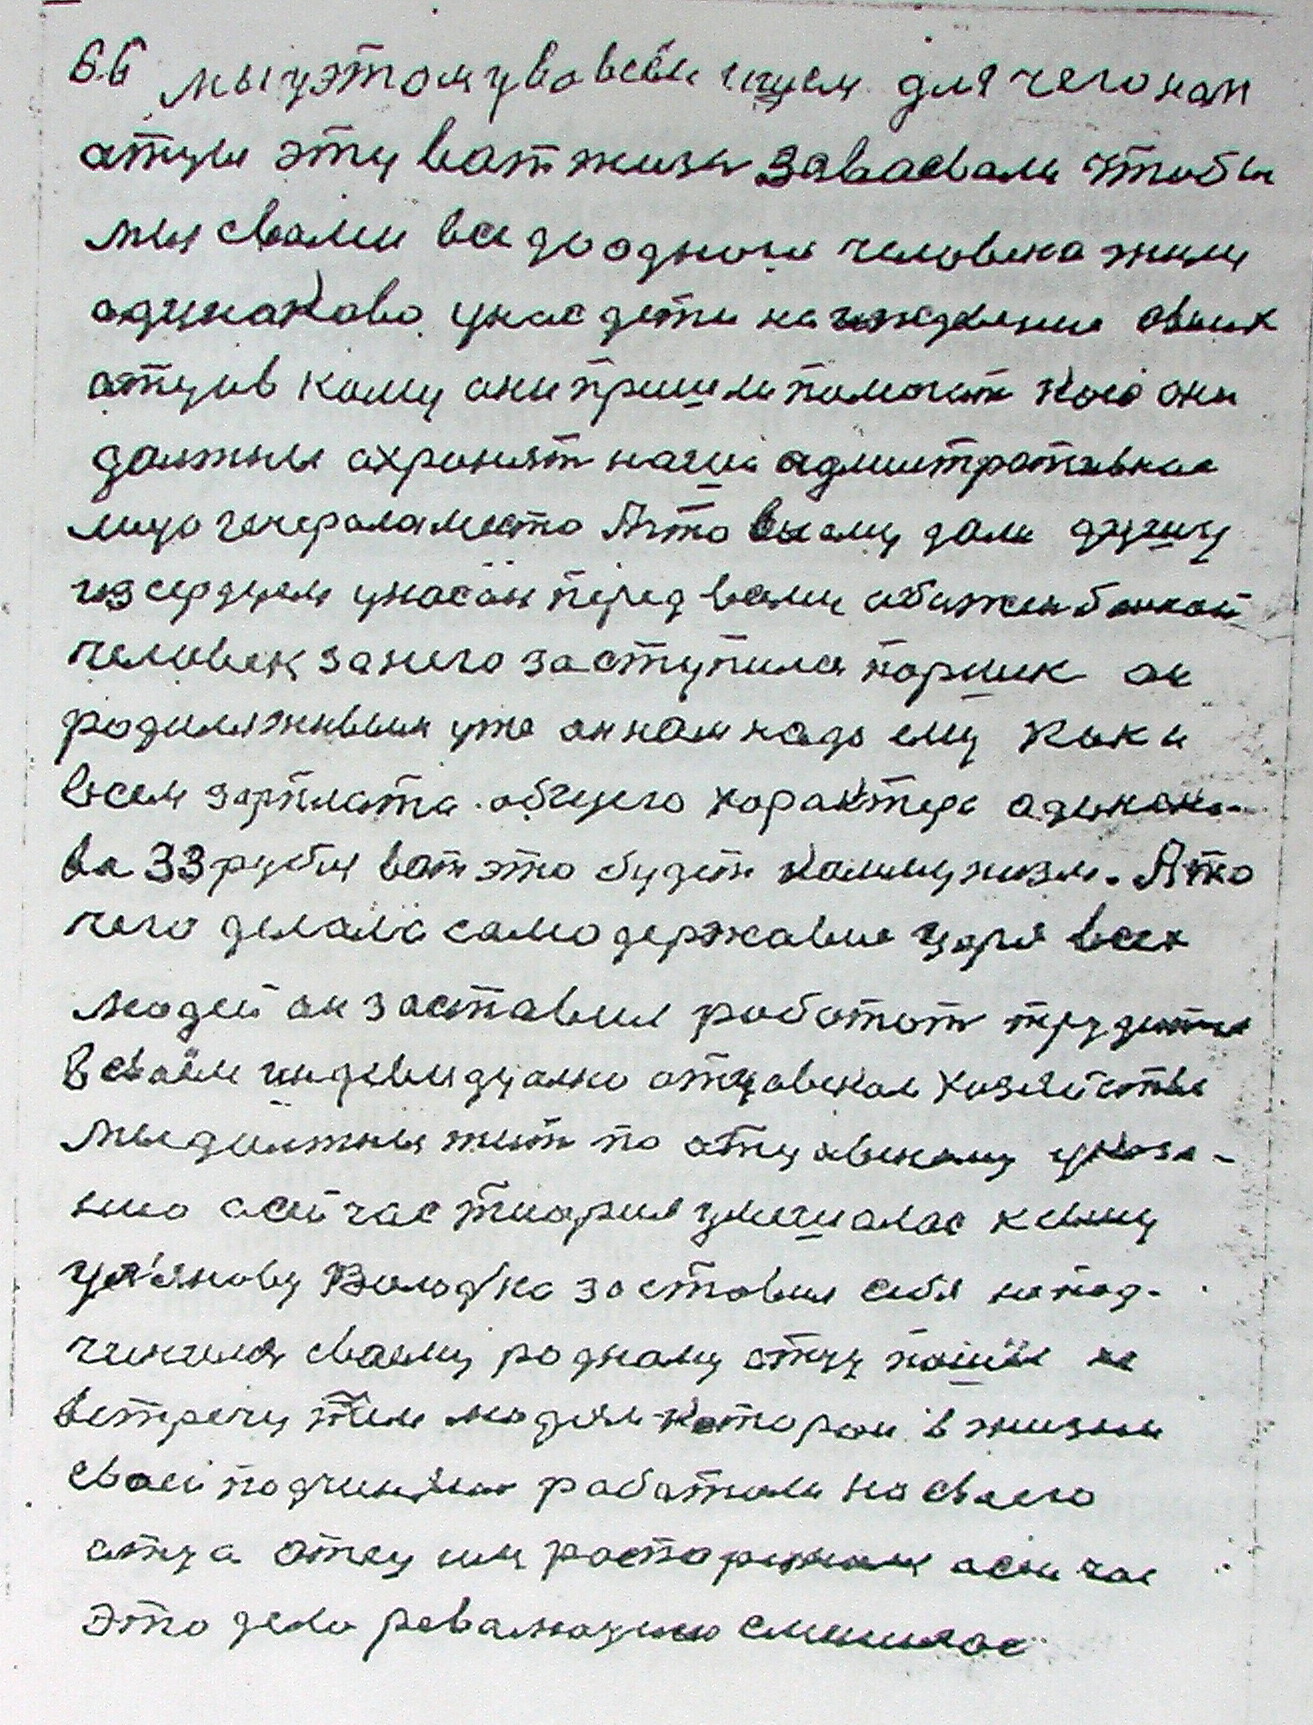 66 мы уэтом уво всём ищем для чего нам
атцы эту вот жизн завоевали чтобы
мы свами все до одного человека жили
одинаково у нас дети на иждевение своих
атцов кому они пришли помогат кого они
должны охронят наши адмитротивное
лицо генерала место Ато вы ему дали душу
из сердцем унас он перед вами обижен бывает
человек за него заступился поршик он
родился живым уже он нам надо ему как и
всем зарплата общего характера одинако-
ва 33 рубля вот это будет коммунизм. Ато
чего делала самодержавие царя всех
людей он заставил работат трудится
в своём индевидуално отцовском хозяйстве
мы должны жит по отцовскому указа-
нию асейчас тиория умешалас к ниму
Ул'янову Володка заставил себя непод-
чинился своему родному отцу пошёл на
встречу тем людям которои в жизни
своеи подчинялис работали на своего
атца отец им роспоряжался асейчас
это дело революцию смешалос